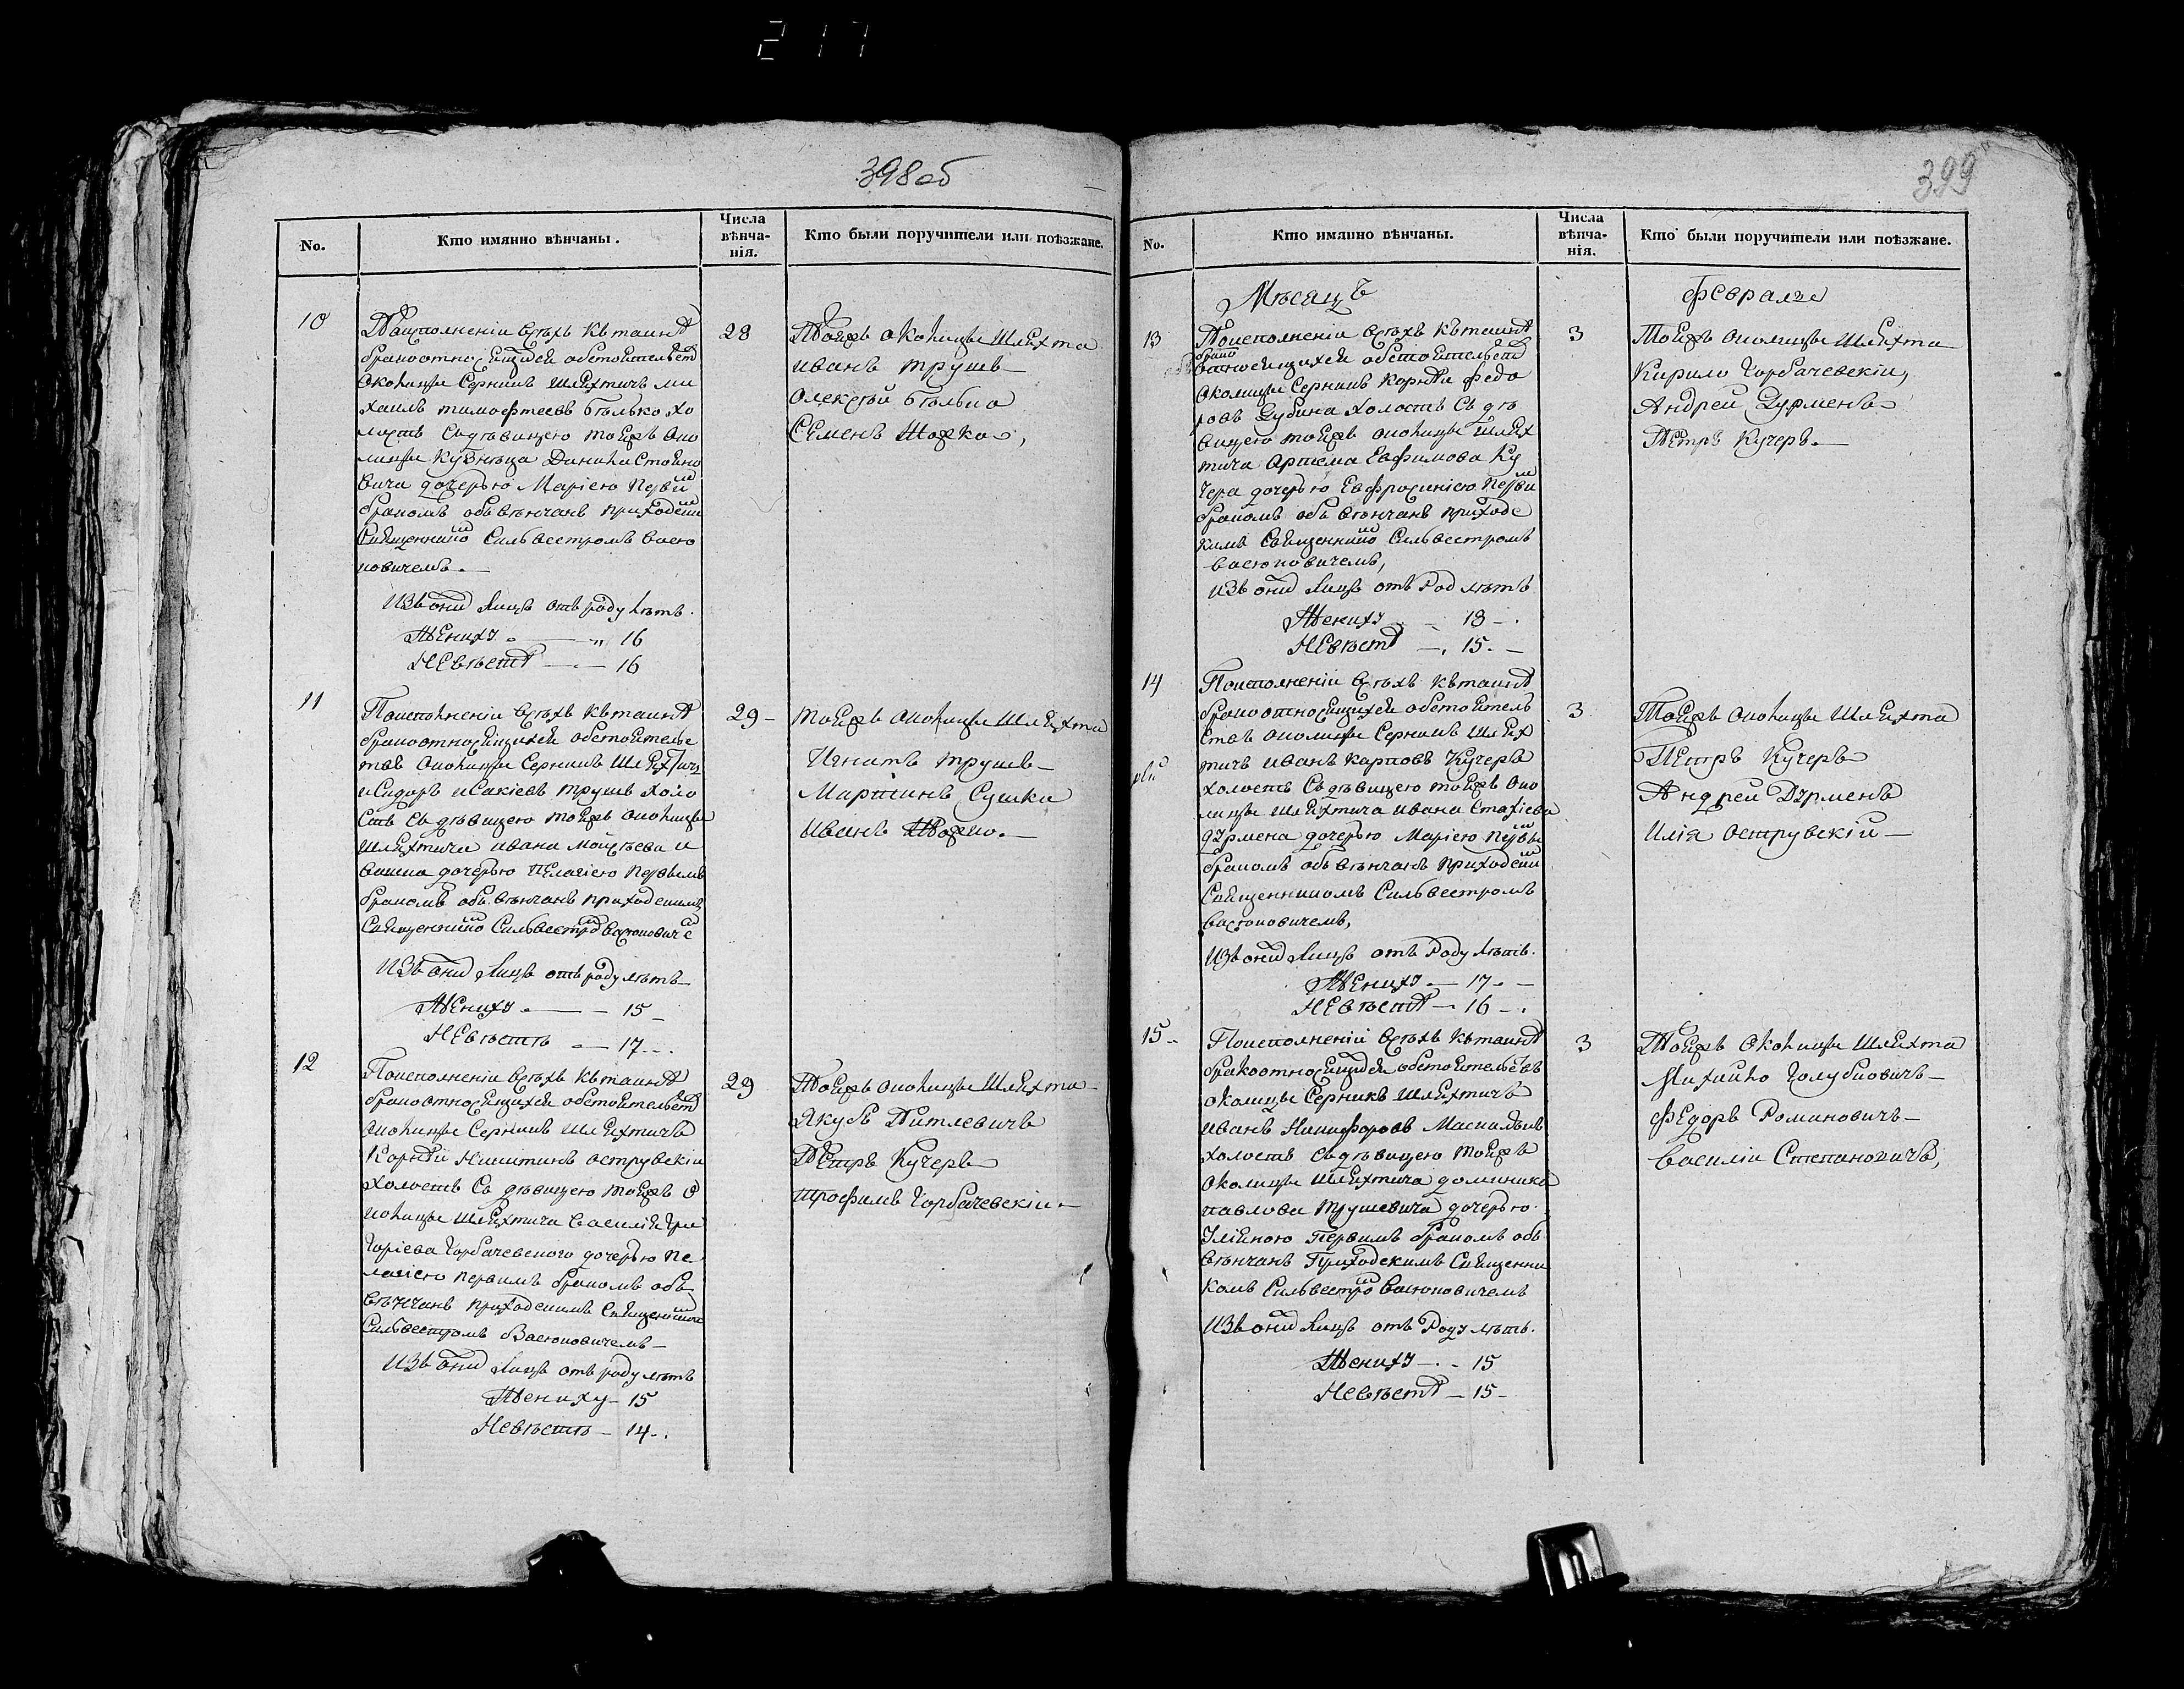 217
398об
No.
Кто имянно вѣнчаны.
Числа вѣнча-нія.
Кто были поручители или поѣзжане.
10
По исполненіи всѣхъ къ таинѣ
брако относящихся обстоятельст
Околицы Серникъ шляхтичъ ми
хаилъ тимофѣевъ бѣлько хо
лостъ съ дѣвицею тоейжъ око
лицы Данила
вича дочерью Маріею первим
бракомъ обвѣнчанъ приходским
Священнико Сильвестромъ васю
ковичемъ.
Изъ оних лицъ отъ роду лѣтъ.
Жениху — 16
Невѣстѣ — 16
28
Тоейжъ околицы Шляхта
иванъ трушъ
Олексѣй бѣлько
Семенъ
11
По исполненіи всѣхъ къ таинѣ
брако относящихся обстоятельс
твъ околицы Серникъ Шляхтичъ
исидоръ исакіевъ трушъ холо
стъ съ дѣвицею тоейжъ околицы
шляхтича ивана
дочерью пелагіею первымъ
бракомъ обвѣнчанъ приходскимъ
Священнико Сильвестро васюкович
Изъ оних лицъ отъ роду лѣтъ
Жениху — 15
Невѣстѣ — 17
29
тоейжъ околицы Шляхта
Игнатъ трушъ
Мартинъ Сушко
Иванъ
12
По исполненіи всѣхъ къ таинѣ
брако относящихся обстоятельст
околицы Серникъ шляхтичъ
Корнѣй Никитинъ острувскій
холостъ съ дѣвицею тоейжъ о
колицы шляхтича василія Гри
горіева Горбачевского дочерью пе
лагіею первимъ бракомъ объ
вѣнчанъ приходскимъ Священникомъ
Сильвестромъ Васюковичемъ
Изъ оних лицъ отъ роду лѣтъ
Жениху — 15
Невѣстѣ — 14
29
Тоейжъ околицы Шляхта
Якубъ Питлевичъ
Петръ Кучеръ
трофимъ Горбачевскій
399
No.
Кто имянно вѣнчаны.
Числа вѣнча-нія.
Кто были поручители или поѣзжане.
Мѣсяцъ
февраля
13
По исполненіи всѣхъ къ таинѣ
брако
относящихся обстоятельст
околицы Серникъ Корнѣй федо
ровъ Дубина холостъ съ дѣ
вицею тоейжъ околицы шлях
тича Артема Евфимова Ку
чера дочерью Евфросиніею перви
бракомъ объ вѣнчанъ приходс
кимъ Священнико Сильвестромъ
васюковичемъ,
Изъ оних лицъ отъ Род лѣтъ
Жениху — 18
Невѣстѣ — 15
3
Тоейжъ околицы Шляхта
Кирило Горбачевскій,
Андрей Дурменъ
Петръ Кучеръ
14
По исполненіи всѣхъ къ таинѣ
брако относящихся обстоятель
ствъ околицы Серникъ Шлях
тичъ иванъ карповъ Кучеръ
холостъ съ дѣвицею тоейжъ око
лицы шляхтича ивана Стахіева
дурмена дочерью Маріею первы
бракомъ объ вѣнчанъ приходским
Священникомъ Сильвестромъ
васюковичемъ,
Изъ оних лицъ отъ Роду лѣтъ.
Жениху — 17
Невѣстѣ — 16
3
Тоейжъ околицы Шляхта
Петръ Кучеръ
Андрей Дурменъ
Илія острувскій
15
По исполненіи всѣхъ къ таинѣ
брако относящихся обстоятельствъ
околицы Серникъ Шляхтичъ
Иванъ Никифоровъ
холостъ съ дѣвицею тоейжъ
околицы шляхтича доминика
павлова трушевича дочерью
Уліяною первимъ бракомъ объ
вѣнчанъ Приходскимъ Священни
комъ Сильвестро васюковичемъ
Изъ оних лицъ отъ Роду лѣтъ.
Жениху — 15
Невѣстѣ — 15
3
Тоейжъ околицы Шляхта
Михайло Голубовичъ
Федоръ Романовичъ
Василій Степановичъ,